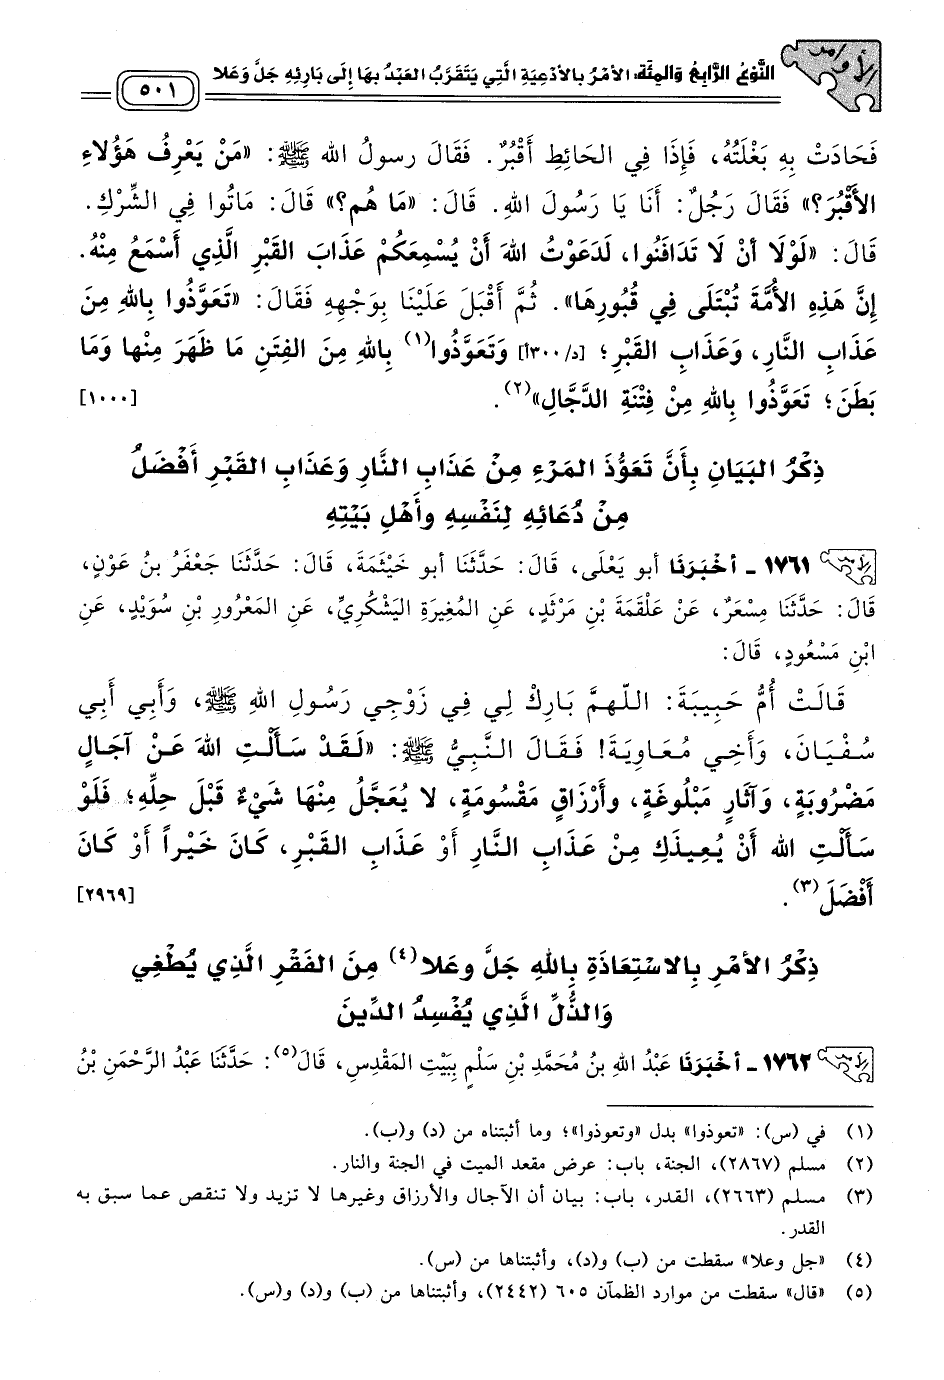 الأوامر
النَّوْعُ الرَّابِعُ وَالمِئَة، الأَمْرُ بِالأَدْعِيَةِ الَّتِي يَتَقَرَّبُ العَبْدُ بِهَا إِلَى بَارِئِهِ جَلَّ وَعَلا
٥٠١
فَحَادَتْ بِهِ بَغْلَتُهُ، فَإِذَا فِي الحَائِطِ أَقْبُرٌ. فَقَالَ رسولُ الله ﷺ: «مَنْ يَعْرِفُ هَؤُلاءِ
الأَقْبُرَ؟» فَقَالَ رَجُلٌ: أَنَا يَا رَسُولَ اللهِ. قَالَ: «مَا هُم؟» قَالَ: مَاتُوا فِي الشِّرْكِ.
قَالَ: «لَوْلَا أَنْ لَا تَدَافَنُوا، لَدَعَوْتُ اللهَ أَنْ يُسْمِعَكُمْ عَذَابَ القَبْرِ الَّذِي أَسْمَعُ مِنْهُ.
إِنَّ هَذِهِ الأُمَّةَ تُبْتَلَى فِي قُبُورِهَا». ثُمَّ أَقْبَلَ عَلَيْنَا بِوَجْهِهِ فَقَالَ: «تَعَوَّذُوا بِاللهِ مِنَ
عَذَابِ النَّارِ، وَعَذَابِ القَبْرِ؛ [د/٣٠٠أ] وَتَعَوَّذُوا(١) بِاللهِ مِنَ الفِتَنِ مَا ظَهَرَ مِنْهَا وَمَا
بَطَنَ؛ تَعَوَّذُوا بِاللهِ مِنْ فِتْنَةِ الدَّجَّالِ»(٢). [١٠٠٠]
ذِكْرُ البَيَانِ بِأَنَّ تَعَوُّذَ المَرْءِ مِنْ عَذَابِ النَّارِ وَعَذَابِ القَبْرِ أَفْضَلُ
مِنْ دُعَائِهِ لِنَفْسِهِ وأَهْلِ بَيْتِهِ
١٧٦١ - أخْبَرَنَا أبو يَعْلَى، قَالَ: حَدَّثَنَا أبو خَيْثَمَةَ، قَالَ: حَدَّثَنَا جَعْفَرُ بنُ عَوْنٍ،
قَالَ: حَدَّثَنَا مِسْعَرٌ، عَنْ عَلْقَمَةَ بْنِ مَرْثَدٍ، عَنِ المُغِيرَةِ اليَشْكُرِيِّ، عَنِ المَعْرُورِ بْنِ سُوَيْدٍ، عَنِ
ابْنِ مَسْعُودٍ، قَالَ:
قَالَتْ أُمُّ حَبِيبَةَ: اللّهمَّ بَارِكْ لِي فِي زَوْجِي رَسُولِ اللهِ ﷺ، وَأَبِي أَبِي
سُفْيَانَ، وَأَخِي مُعَاوِيَةَ! فَقَالَ النَّبِيُّ ﷺ: «لَقَدْ سَأَلْتِ اللهَ عَنْ آجَالٍ
مَضْرُوبَةٍ، وَآثَارٍ مَبْلُوغَةٍ، وأَرْزَاقٍ مَقْسُومَةٍ، لا يُعَجَّلُ مِنْهَا شَيْءٌ قَبْلَ حِلِّهِ؛ فَلَوْ
سَأَلْتِ الله أَنْ يُعِيذَكِ مِنْ عَذَابِ النَّارِ أَوْ عَذَابِ القَبْرِ، كَانَ خَيْراً أَوْ كَانَ
أَفْضَلَ(٣). [٢٩٦٩]
ذِكْرُ الأَمْرِ بِالاسْتِعَاذَةِ بِاللهِ جَلَّ وعَلا(٤) مِنَ الفَقْرِ الَّذِي يُطْغِي
وَالذُّلِّ الَّذِي يُفْسِدُ الدِّينَ
١٧٦٢ - أخْبَرَنَا عَبْدُ اللهِ بنُ مُحَمَّدِ بْنِ سَلْمٍ بِبَيْتِ المَقْدِسِ، قَالَ(٥): حَدَّثَنَا عَبْدُ الرَّحْمَنِ بْنُ
(١) في (س): «تعوذوا» بدل «وتعوذوا»؛ وما أثبتناه من (د) و(ب).
(٢) مسلم (٢٨٦٧)، الجنة، باب: عرض مقعد الميت في الجنة والنار.
(٣) مسلم (٢٦٦٣)، القدر، باب: بيان أن الآجال والأرزاق وغيرها لا تزيد ولا تنقص عما سبق به
القدر.
(٤) «جل وعلا» سقطت من (ب) و(د)، وأثبتناها من (س).
(٥) «قال» سقطت من موارد الظمآن ٦٠٥ (٢٤٤٢)، وأثبتناها من (ب) و(د) و(س).